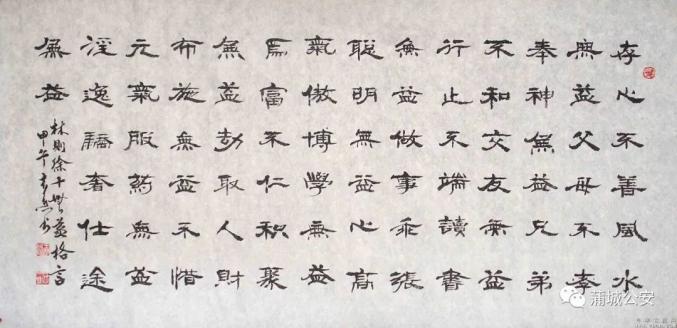 存心不善風水
無益父母不孝
奉神無益兄弟
不和交友無益
行止不端讀書
無益做事乖張
聰明無益心高
氣傲博學無益
為富不仁積聚
無益劫取人財
布施無益不惜
元氣服藥無益
淫逸驕奢仕途
無益
林則徐十無益格言
甲午
蒲城公安